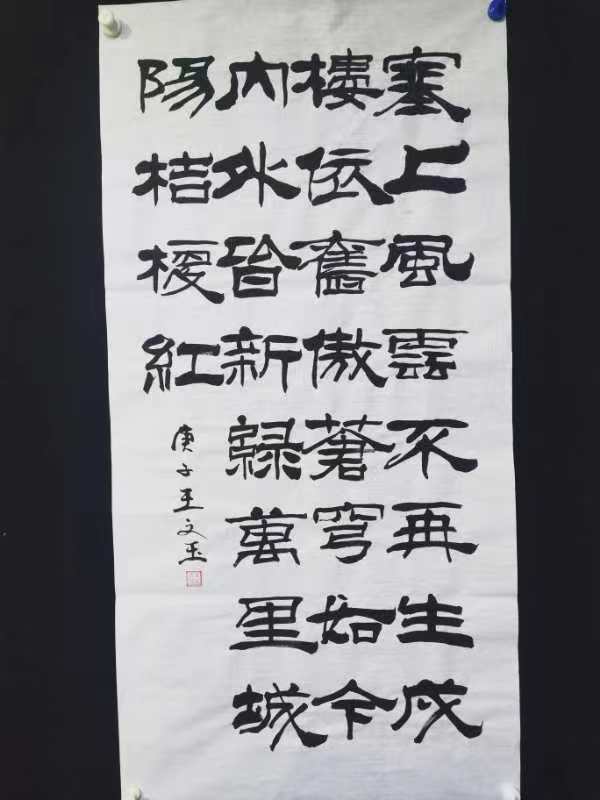 塞上風雲不再生戍
樓依舊傲蒼穹如今
內外皆新綠萬里城
陽桔梗紅
庚子王文玉